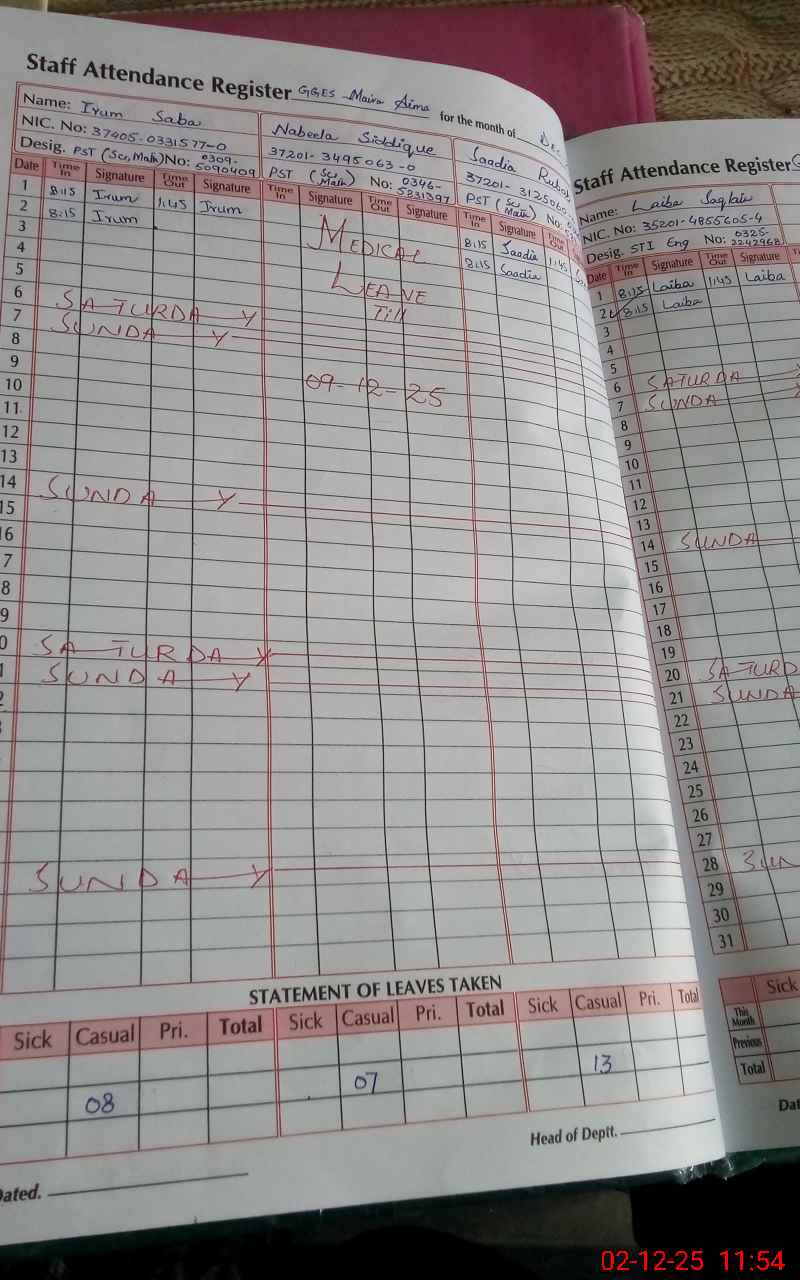 Staff Attendance Register GGES Maira Aima for the month of Dec
Name: Irum Saba
NIC. No: 37405-0331577-0
Desig. PST (Sci, Math) No: 0309-5090409
Nabeela Siddique
37201-3495063-0
PST (Sci Math) No: 0346-5231397
Saadia
37201-3125060
PST (Sci Math) No:
Date Time In Signature Time Out Signature Time In Signature Time Out Signature Time In Signature Time Out
1 8:15 Irum 1:45 Irum 8:15 Saadia 1:45
2 8:15 Irum 8:15 Saadia
3 MEDICAL
4
5 LEAVE
6 SATURDAY Till
7 SUNDAY
8
9
10 09-12-25
11
12
13
14 SUNDAY
15
16
7
8
9
0 SATURDAY
1 SUNDAY
2
SUNDAY
STATEMENT OF LEAVES TAKEN
Sick Casual Pri. Total Sick Casual Pri. Total Sick Casual Pri. Total
08 07 13
Dated. Head of Deptt.
Staff Attendance Register
Name: Laiba Saqlain
NIC. No: 35201-4855605-4
Desig. STI Eng No: 0325-2242968
Date Time In Signature Time Out Signature
1 8:15 Laiba 1:45 Laiba
2 8:15 Laiba
3
4
5
6 SATURDA
7 SUNDA
8
9
10
11
12
13
14 SUNDA
15
16
17
18
19
20 SATURD
21 SUNDA
22
23
24
25
26
27
28 SUN
29
30
31
Sick
This Month
Previous
Total
Dat
02-12-25 11:54